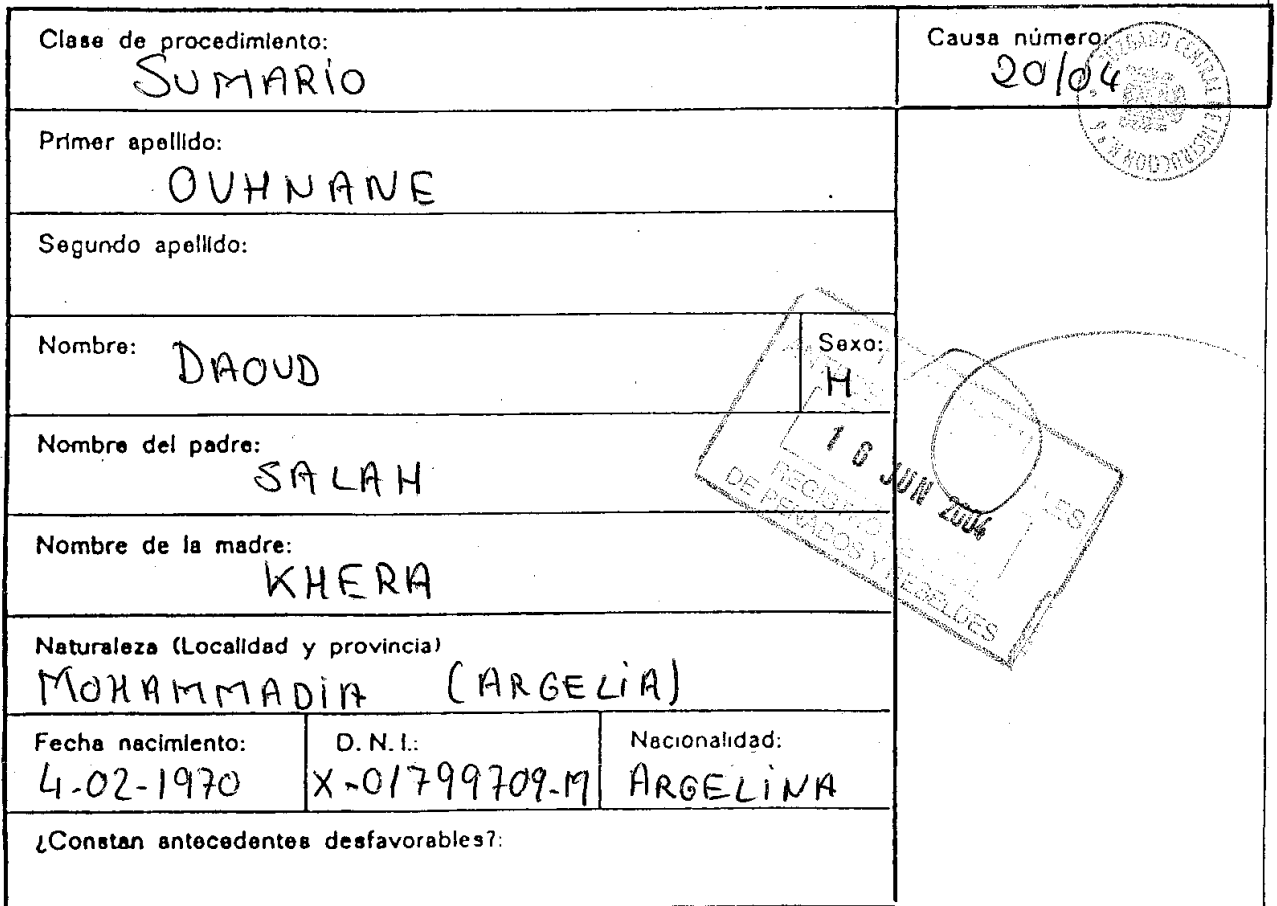 Clase de procedimiento:
SUMARIO
Causa número:
20/04
JUZGADO CENTRAL DE INSTRUCCION N.
Primer apellido:
OUHNANE
Segundo apellido:
Nombre:
DAOUD
Sexo:
H
Nombre del padre:
SALAH
16 JUN 2004
REGISTRO
DE PENADOS Y REBELDES
Nombre de la madre:
KHERA
Naturaleza (Localidad y provincia)
MOHAMMADIA (ARGELIA)
Fecha nacimiento:
4-02-1970
D. N. I.:
X-01799709-M
Nacionalidad:
ARGELINA
¿Constan antecedentes desfavorables?: